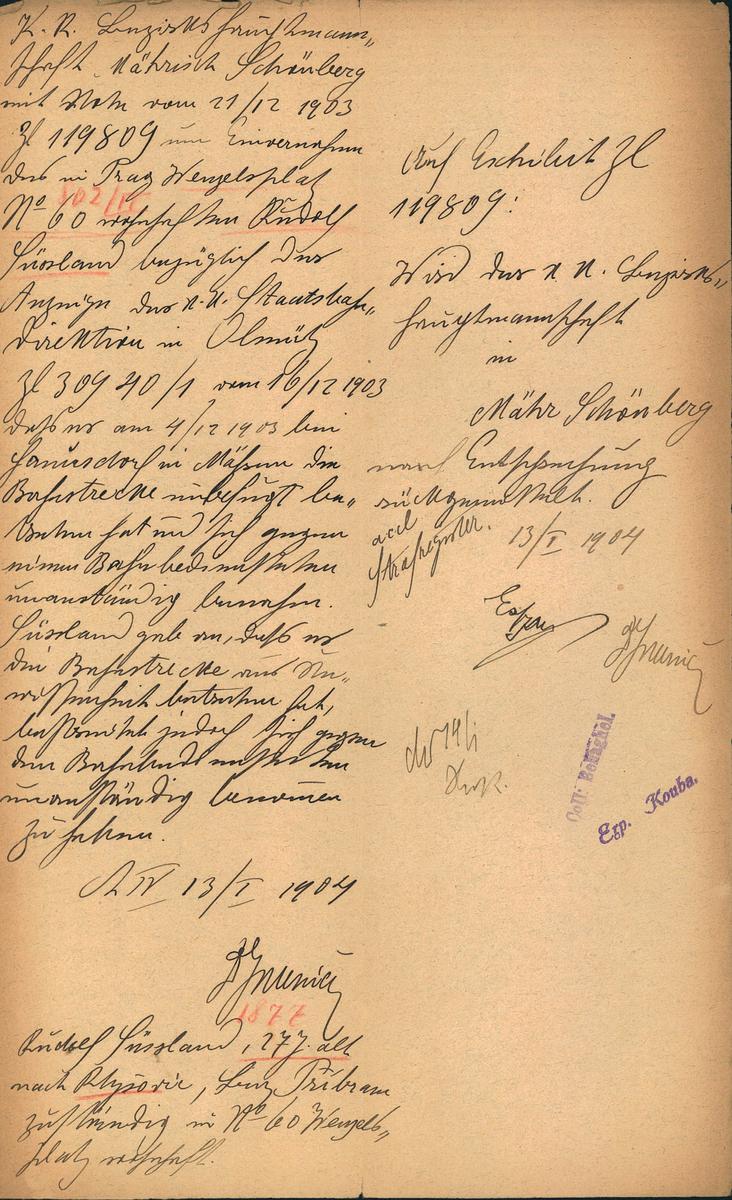 K. K. Bezirkshauptmann„
schaft Mährisch Schönberg
mit Note vom 21/12 1903
Zl 119809 um Einvernahme
des in Prag Wenzelsplatz
802/II
No 60 wohnhaften Rudolf
Süssland bezüglich der
Anzeige der k. k. Staatsbahn„
direktion in Olmütz
Zl 30940/1 vom 16/12 1903
daß er am 4/12 1903 beim
in Mähren die
Bahnstrecke unbefugt be„
treten hat und sich gegen
einen Bahnbediensteten
unanständig benahm.
Süssland gab an, daß er
die Bahnstrecke aus Un„
wissenheit betreten hat,
bestreitet jedoch sich gegen
den Bahnbediensteten
unanständig benommen
zu haben.
13/I 1904
1877
Rudolf Süssland, 27 J. alt
nach , Bez Přibram
zuständig in No 60 Wenzels„
platz wohnhaft.
Auf Exhibit Zl
119809:
Wird der k. k. Bezirks„
hauptmannschaft
in
Mähr Schönberg
nach Entsprechung
rückgemittelt.
13/I 1904
Strafregister.
14/I
Coll: 
Exp. Kouba.